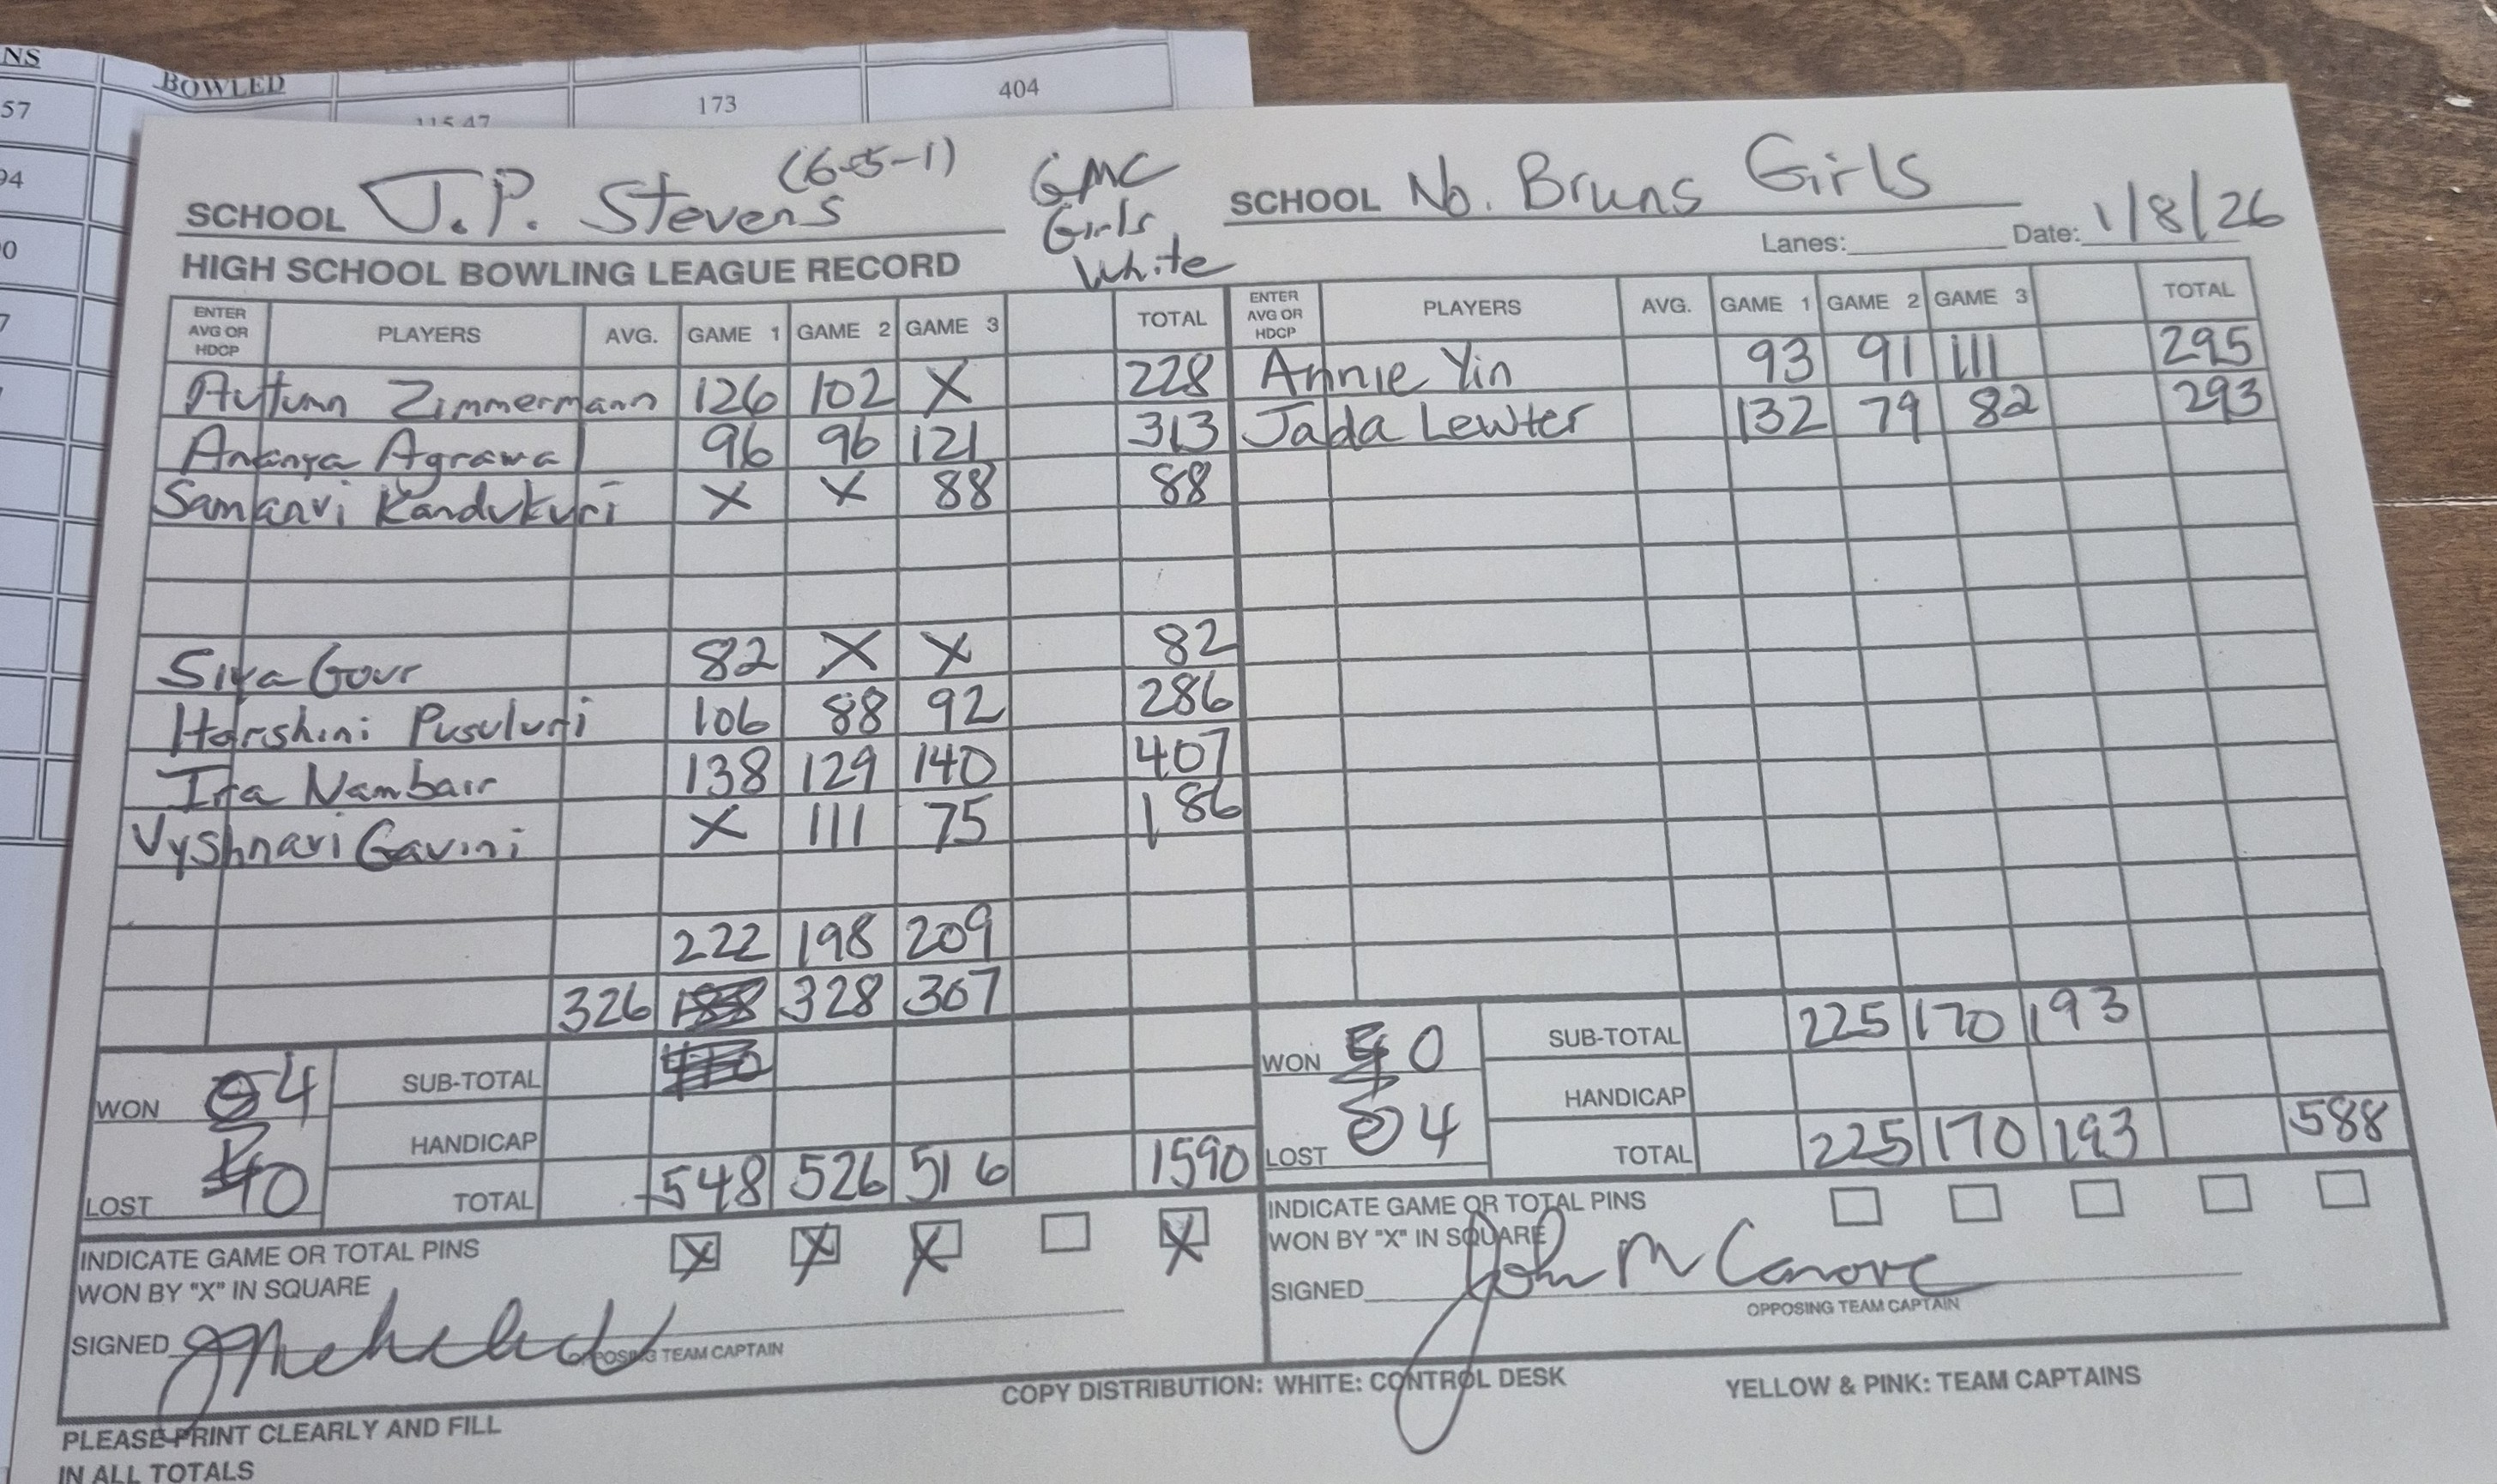 NS
BOWLED
57
115.47
173
404
94
0
7
SCHOOL J.P. Stevens (6-5-1)
GMC
Girls
White
SCHOOL No. Bruns Girls
Lanes: Date: 1/8/26
HIGH SCHOOL BOWLING LEAGUE RECORD
ENTER AVG OR HDCP PLAYERS AVG. GAME 1 GAME 2 GAME 3 TOTAL
Autumn Zimmermann 126 102 X 228
Ananya Agrawal 96 96 121 313
Samanvi Kandukuri X X 88 88
Siya Gour 82 X X 82
Harshini Pusuluri 106 88 92 286
Ira Nambair 138 129 140 407
Vyshnavi Gavini X 111 75 186
222 198 209
326 328 307
WON 4
LOST 0
SUB-TOTAL
HANDICAP
TOTAL 548 526 516 1590
INDICATE GAME OR TOTAL PINS
WON BY "X" IN SQUARE X X X X
SIGNED
OPPOSING TEAM CAPTAIN
ENTER AVG OR HDCP PLAYERS AVG. GAME 1 GAME 2 GAME 3 TOTAL
Annie Yin 93 91 111 295
Jada Lewter 132 79 82 293
WON 0
LOST 4
SUB-TOTAL 225 170 193
HANDICAP
TOTAL 225 170 193 588
INDICATE GAME OR TOTAL PINS
WON BY "X" IN SQUARE
SIGNED John M
OPPOSING TEAM CAPTAIN
COPY DISTRIBUTION: WHITE: CONTROL DESK YELLOW & PINK: TEAM CAPTAINS
PLEASE PRINT CLEARLY AND FILL
IN ALL TOTALS